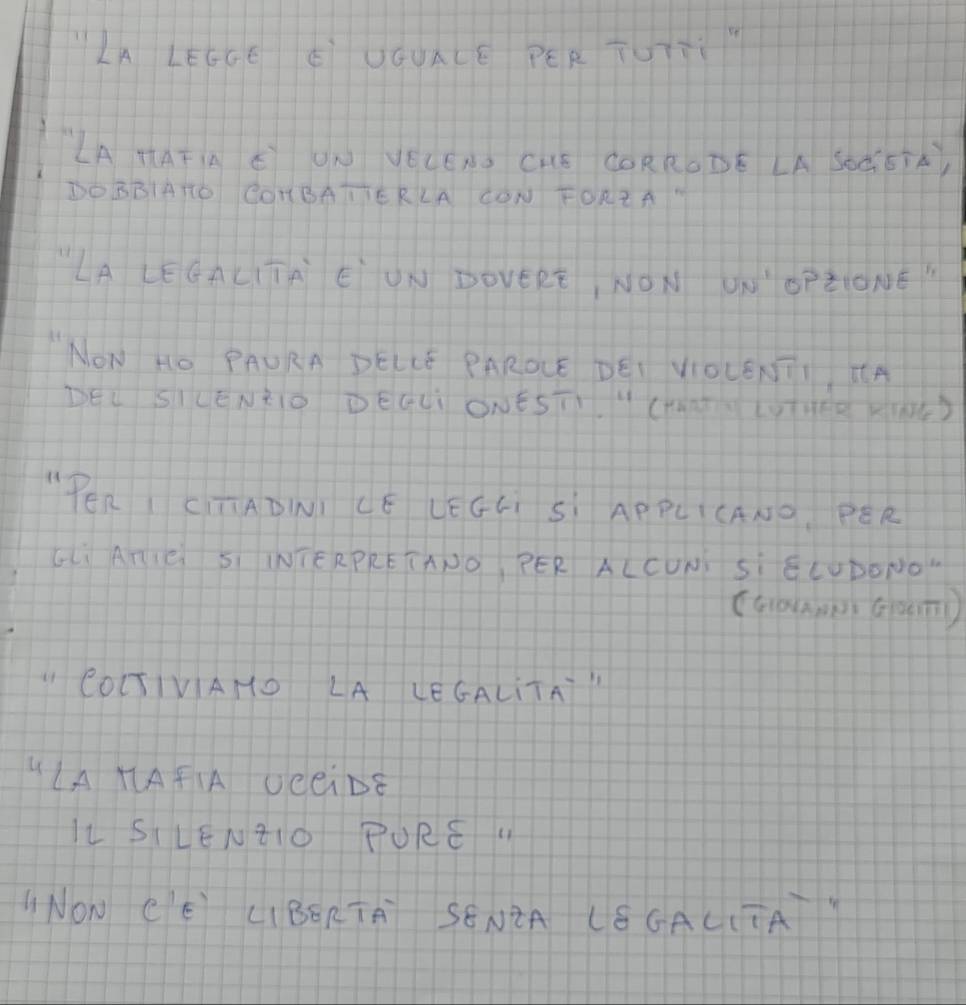 "LA LEGGE E' UGUALE PER TUTTI"
"LA MAFIA E' UN VELENO CHE CORRODE LA SOCIETA',
DOBBIAMO COMBATTERLA CON FORZA"
"LA LEGALITA' E' UN DOVERE, NON UN'OPZIONE"
"NON HO PAURA DELLE PAROLE DEI VIOLENTI, MA
DEL SILENZIO DEGLI ONESTI." (MARTIN LUTHER KING)
"PER I CITTADINI LE LEGGI SI APPLICANO, PER
GLI AMICI SI INTERPRETANO, PER ALCUNI SI ELUDONO"
(GIOVANNI GIOLITTI)
"COLTIVIAMO LA LEGALITA'"
"LA MAFIA UCCIDE
IL SILENZIO PURE"
"NON C'E' LIBERTA' SENZA LEGALITA'"